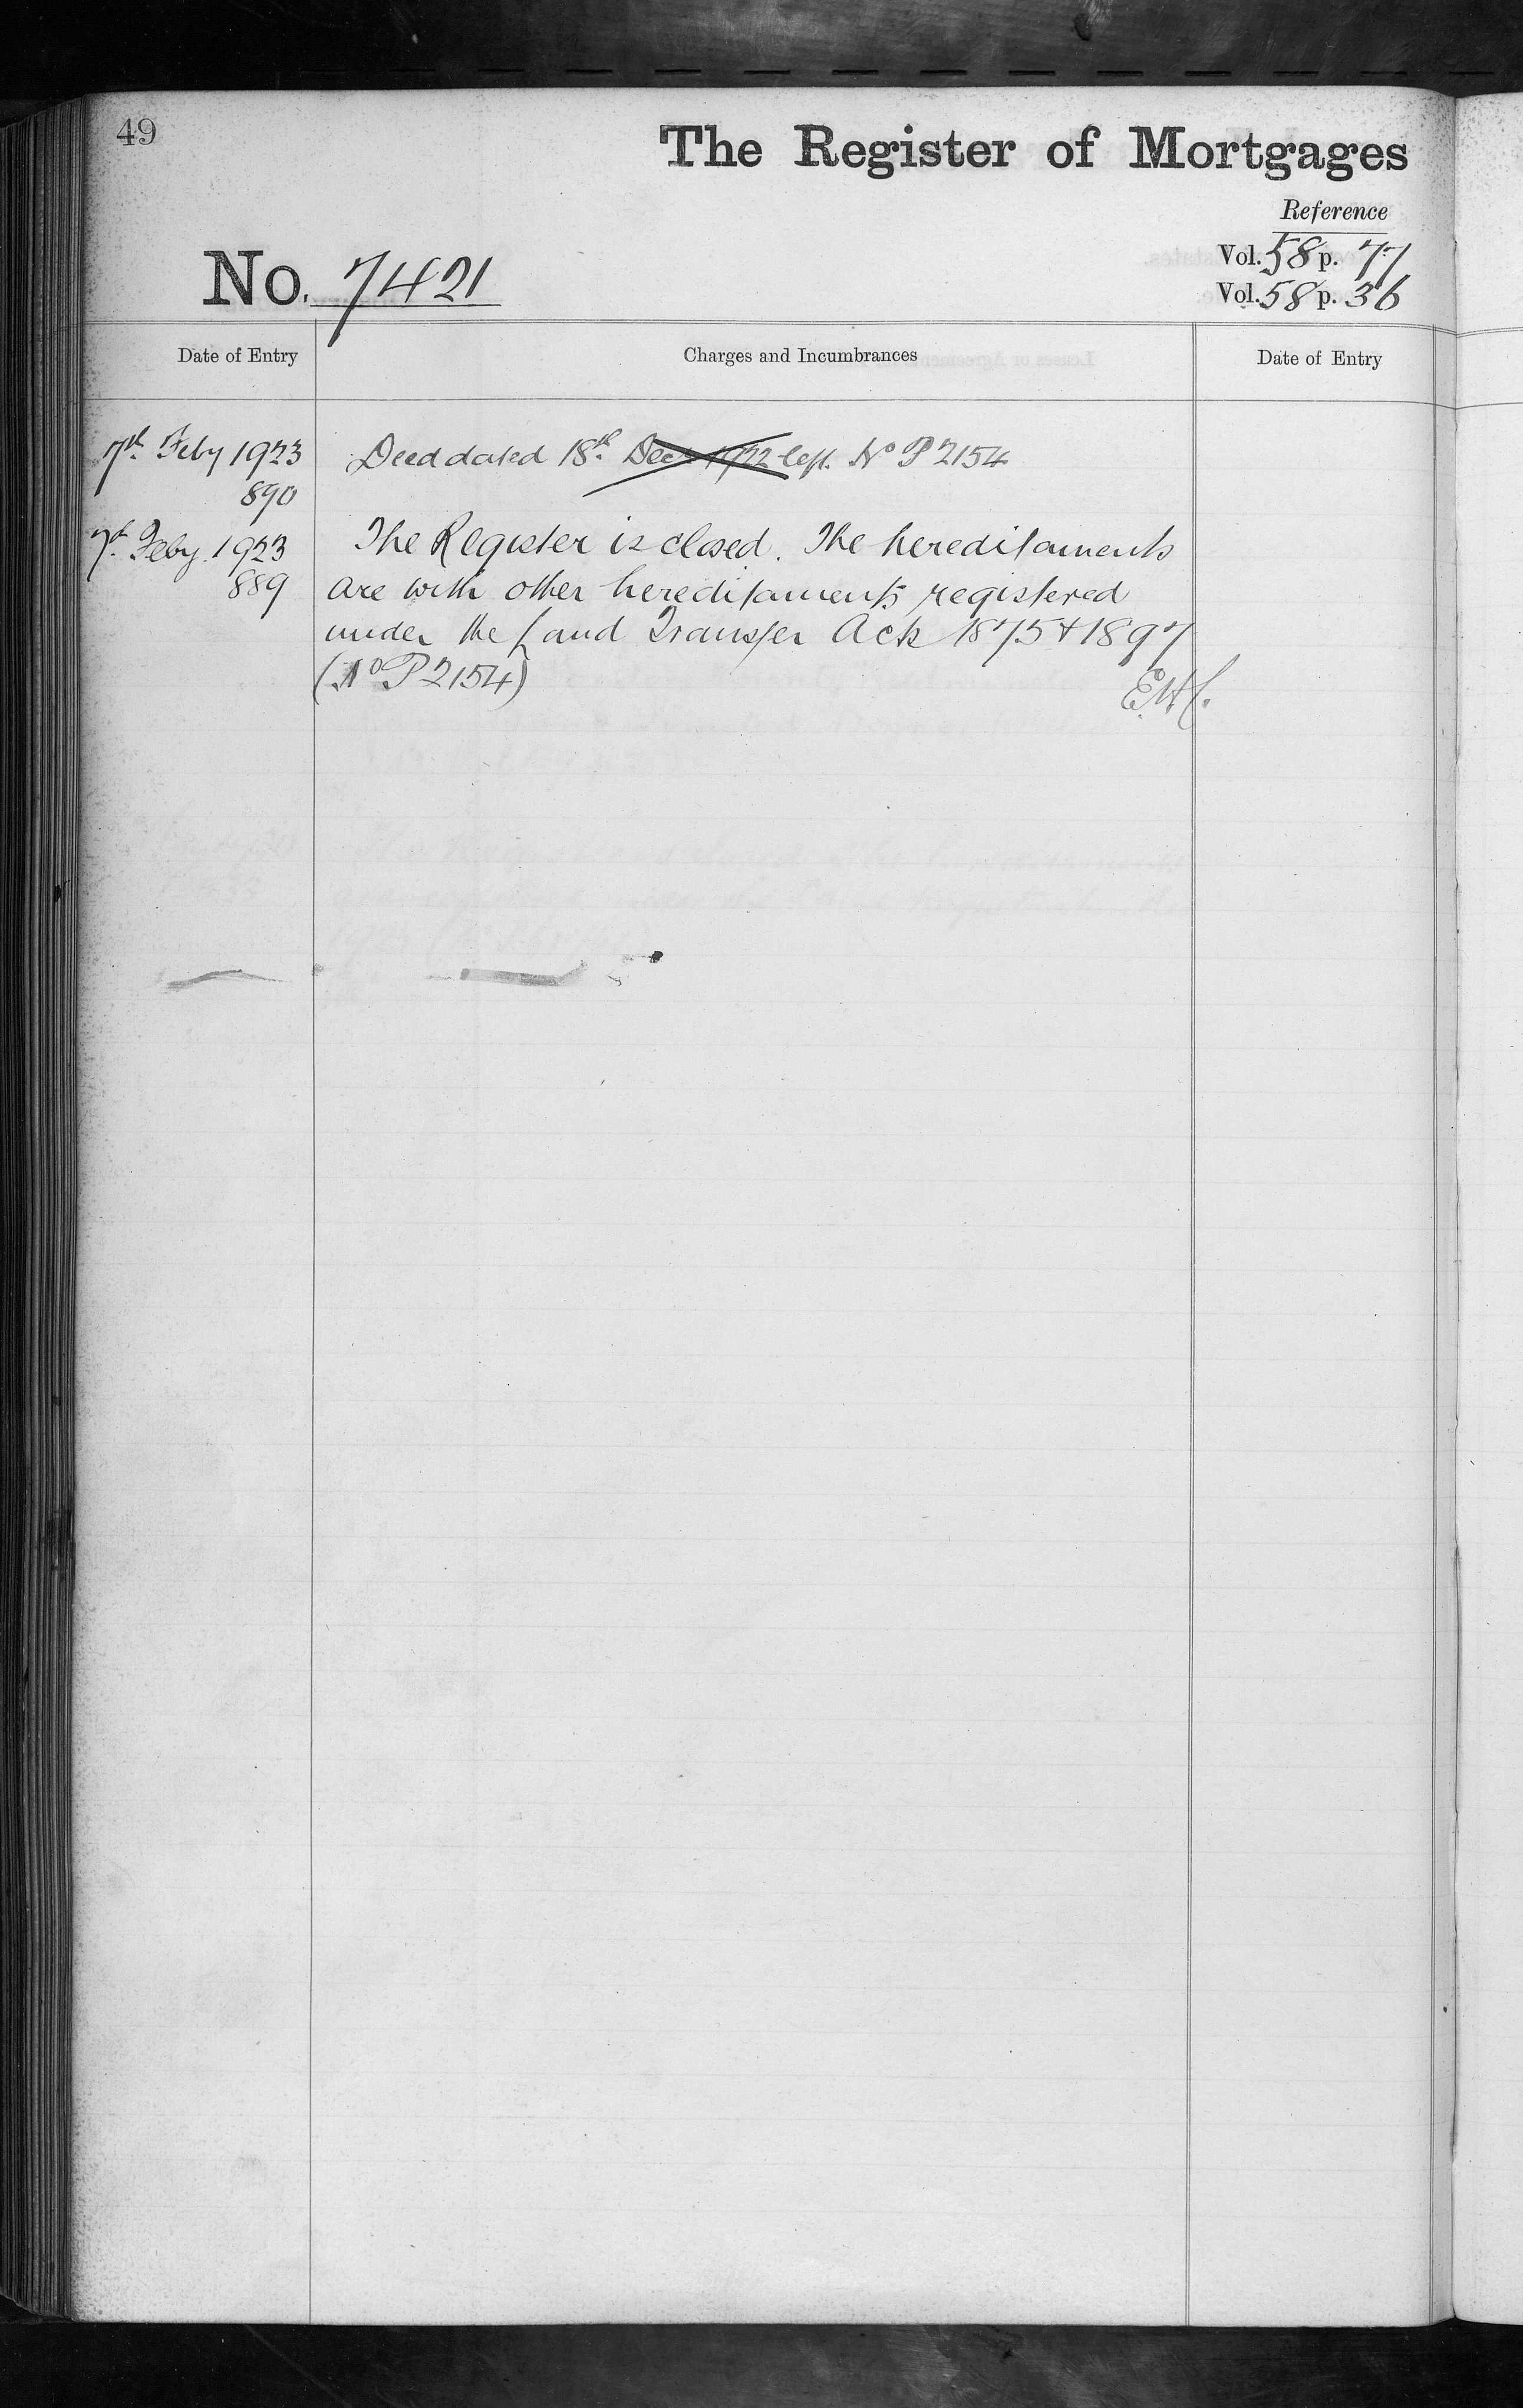 49
The Register of Mortgages
Reference
Vol. 58 p. 77
Vol. 58 p. 36
No. 7421
Date of Entry
Charges and Incumbrances
Date of Entry
7th Feby 1923
890
Deed dated 18th Dec 1922 No P 2154
7th Feby. 1923
889
The Register is closed. The hereditaments
are with other hereditaments registered
under the Land Transfer Acts 1875 & 1897
(No P 2154)